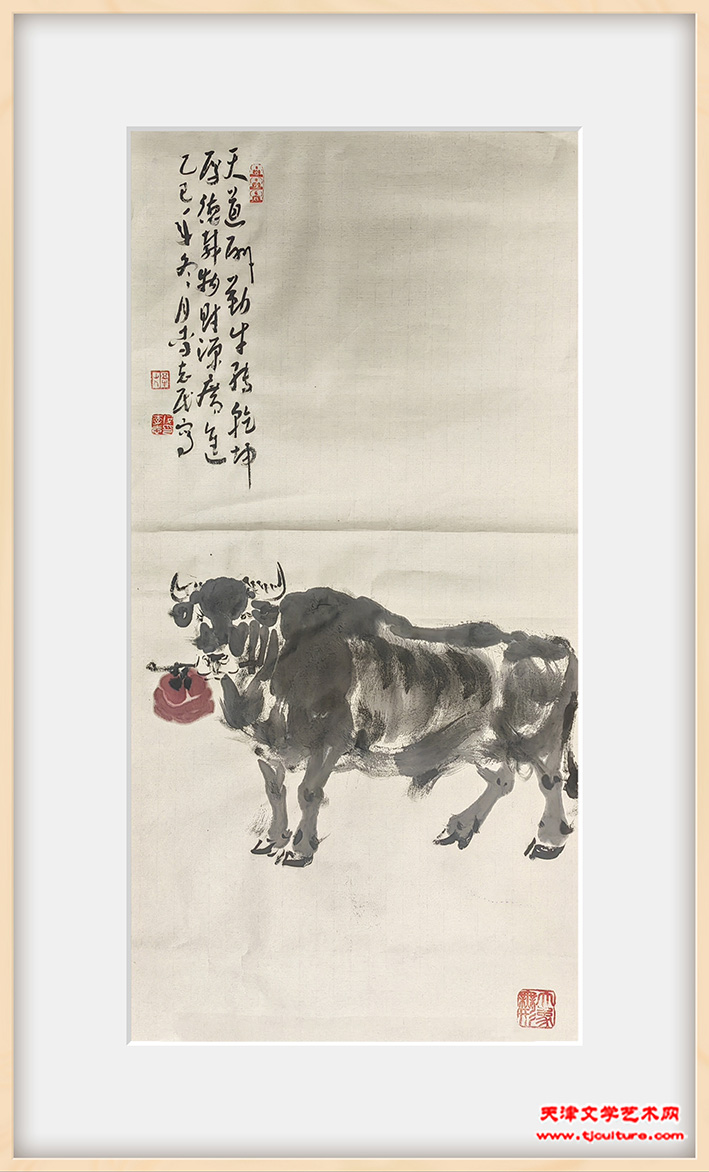 天道酬勤牛转乾坤
厚德载物财源广进
乙巳年冬月尚志民写
天津文学艺术网
www.tjculture.com